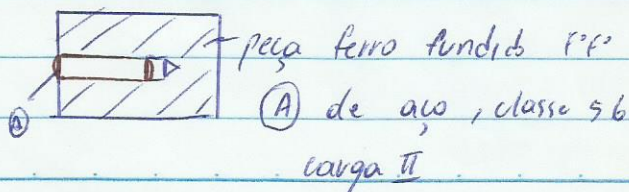 peça ferro fundido FºFº
Ⓐ de aço, classe 5.6
carga II